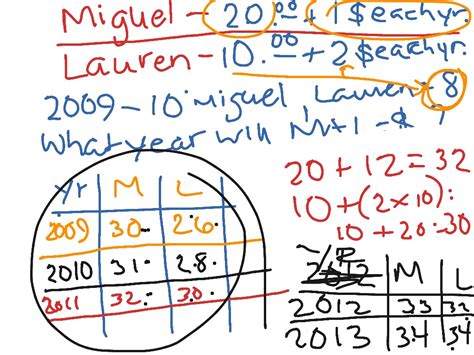 Miguel - 20.00 + 1 $ each yr.
Lauren - 10.00 + 2 $ each yr.
2009 - 10 Miguel, Lauren - 8
What year will M + l - $ ?
20 + 12 = 32
10 + (2 x 10):
10 + 20 - 30
yr M L
2009 30. 26.
2010 31. 28.
2011 32. 30.
M L
2012 33 32
2013 34 34